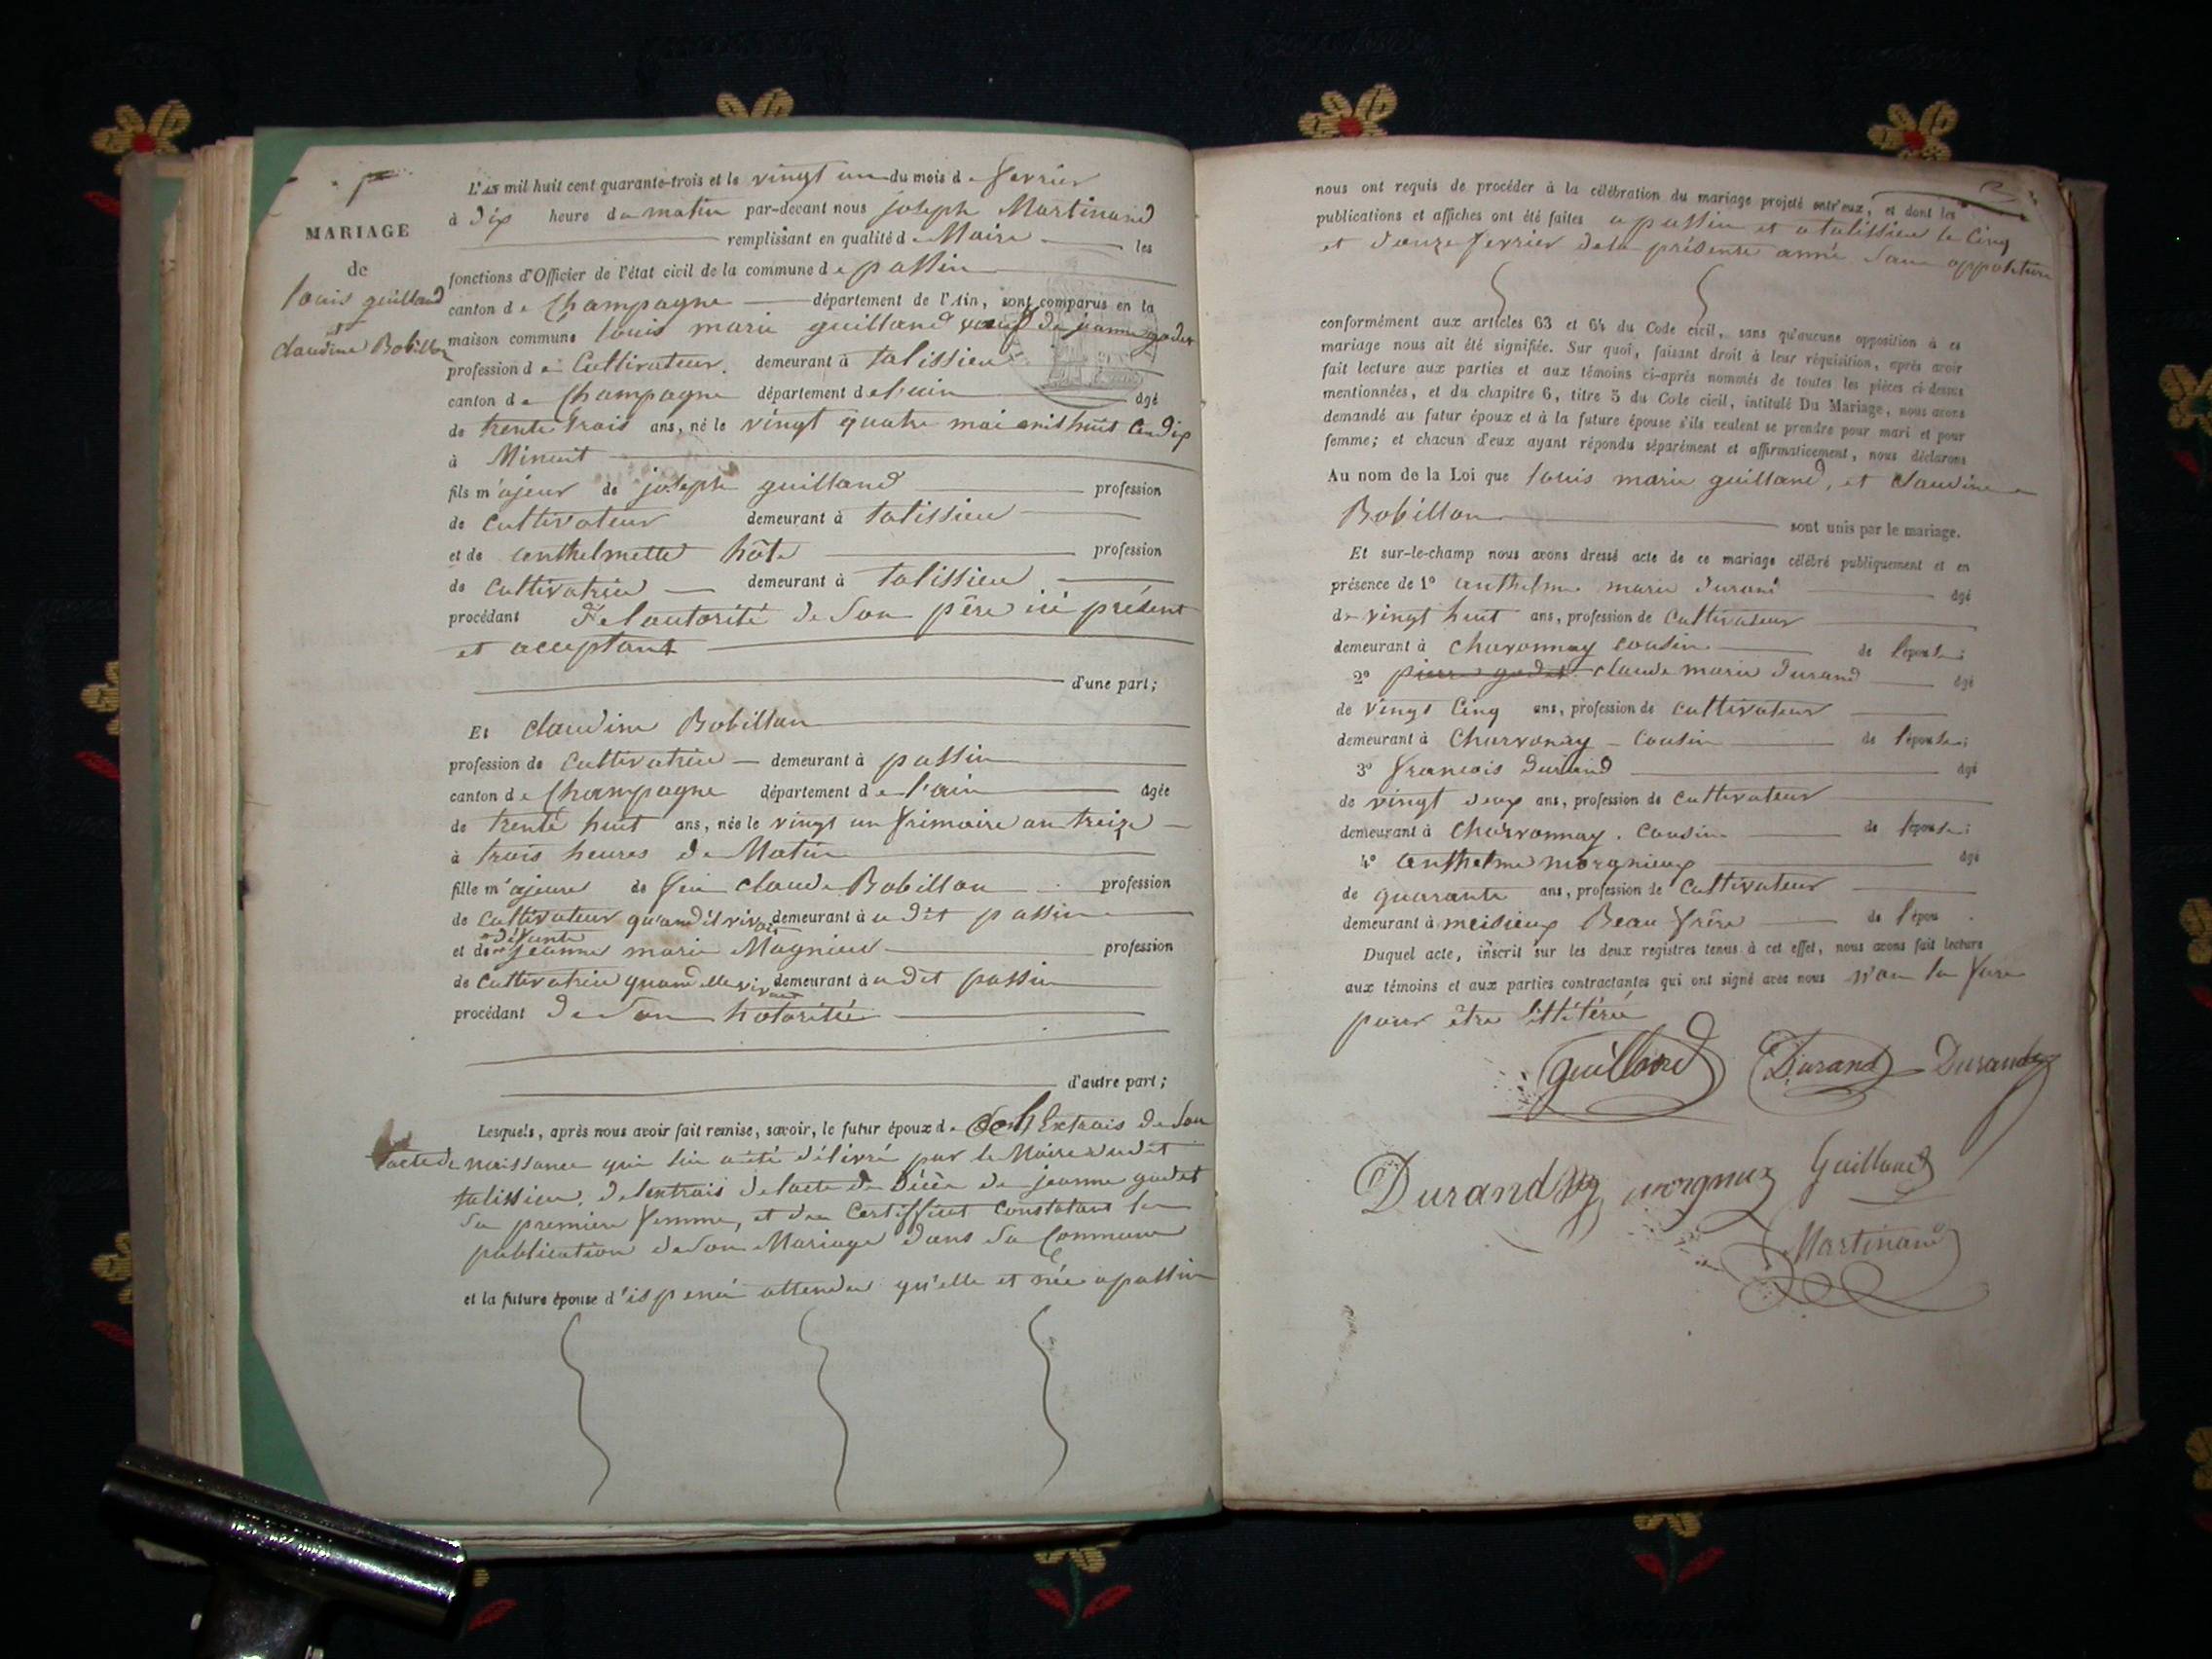 MARIAGE
de
louis guilland
et
claudine Bobillon
L'an mil huit cent quarante-trois et le vingt un du mois de fevrier
à dix heure du matin par-devant nous joseph Martinand
remplissant en qualité de Maire les
fonctions d'Officier de l'état civil de la commune de passin
canton de Champagne département de l'Ain, sont comparus en la
maison commune louis marie guilland veuf de jeanne godet
profession de Cultivateur. demeurant à talissieu
canton de Champagne département de l'ain âgé
de trente trois ans, né le vingt quatre mai mil huit Cen dix
à Minuit
fils m'ajeur de joseph guilland profession
de Cultivateur demeurant à talissieu
et de anthelmette hôte profession
de Cultivatrice demeurant à talissieu
procédant de lautorité de Son père ici présent
et acceptant
d'une part;
Et claudine Bobillon
profession de Cultivatrice demeurant à passin
canton de Champagne département de l'ain âgée
de trente huit ans, née le vingt un frimaire an treize
à trois heures du Matin
fille m'ajeure de feu claude Bobillon profession
de Cultivateur quand il vivait demeurant à udit passin
et de défunte jeanne marie Magnieu profession
de Cultivatrice quand elle vivait demeurant à udit passin
procédant de Son hotorité
d'autre part;
Lesquels, après nous avoir fait remise, savoir, le futur époux de Extrais de Son
acte de naissance qui lui a été délivré par le Maire dudit
talissieu, de lextrais de lacte de décès de jeanne godet
Sa premiere femme, et du Certifficat Constatant la
publication de Son Mariage dans Sa Commune
et la future épouse d'ispensé attendu qu'elle et née a passin
nous ont requis de procéder à la célébration du mariage projeté entr'eux, et dont les
publications et affiches ont été faites a passin et a talissieu le Cinq
et douze fevrier de la présente anné Sans opposition
conformément aux articles 63 et 64 du Code civil, sans qu'aucune opposition à ce
mariage nous ait été signifiée. Sur quoi, faisant droit à leur réquisition, après avoir
fait lecture aux parties et aux témoins ci-après nommés de toutes les pièces ci-dessus
mentionnées, et du chapitre 6, titre 5 du Code civil, intitulé Du Mariage, nous avons
demandé au futur époux et à la future épouse s'ils veulent se prendre pour mari et pour
femme; et chacun d'eux ayant répondu séparément et affirmativement, nous déclarons
Au nom de la Loi que louis marie guilland, et claudine
Bobillon sont unis par le mariage.
Et sur-le-champ nous avons dressé acte de ce mariage célébré publiquement et en
présence de 1° anthelme marie durand âgé
de vingt huit ans, profession de Cultivateur
demeurant à Charvonnay Cousin de l'épouse;
2° pierre godet claude marie durand âgé
de vingt Cinq ans, profession de Cultivateur
demeurant à Charvonay Cousin de l'épouse;
3° francois durand âgé
de vingt deux ans, profession de Cultivateur
demeurant à Charvonnay. Cousin de lépouse;
4° anthelme morgnieux âgé
de quarante ans, profession de Cultivateur
demeurant à meisieux Beau frère de l'épou
Duquel acte, inscrit sur les deux registres tenus à cet effet, nous avons fait lecture
aux témoins et aux parties contractantes qui ont signé avec nous
pour être littérée
guilland Durand Durand
Durand morgnieux Guilland
Martinand